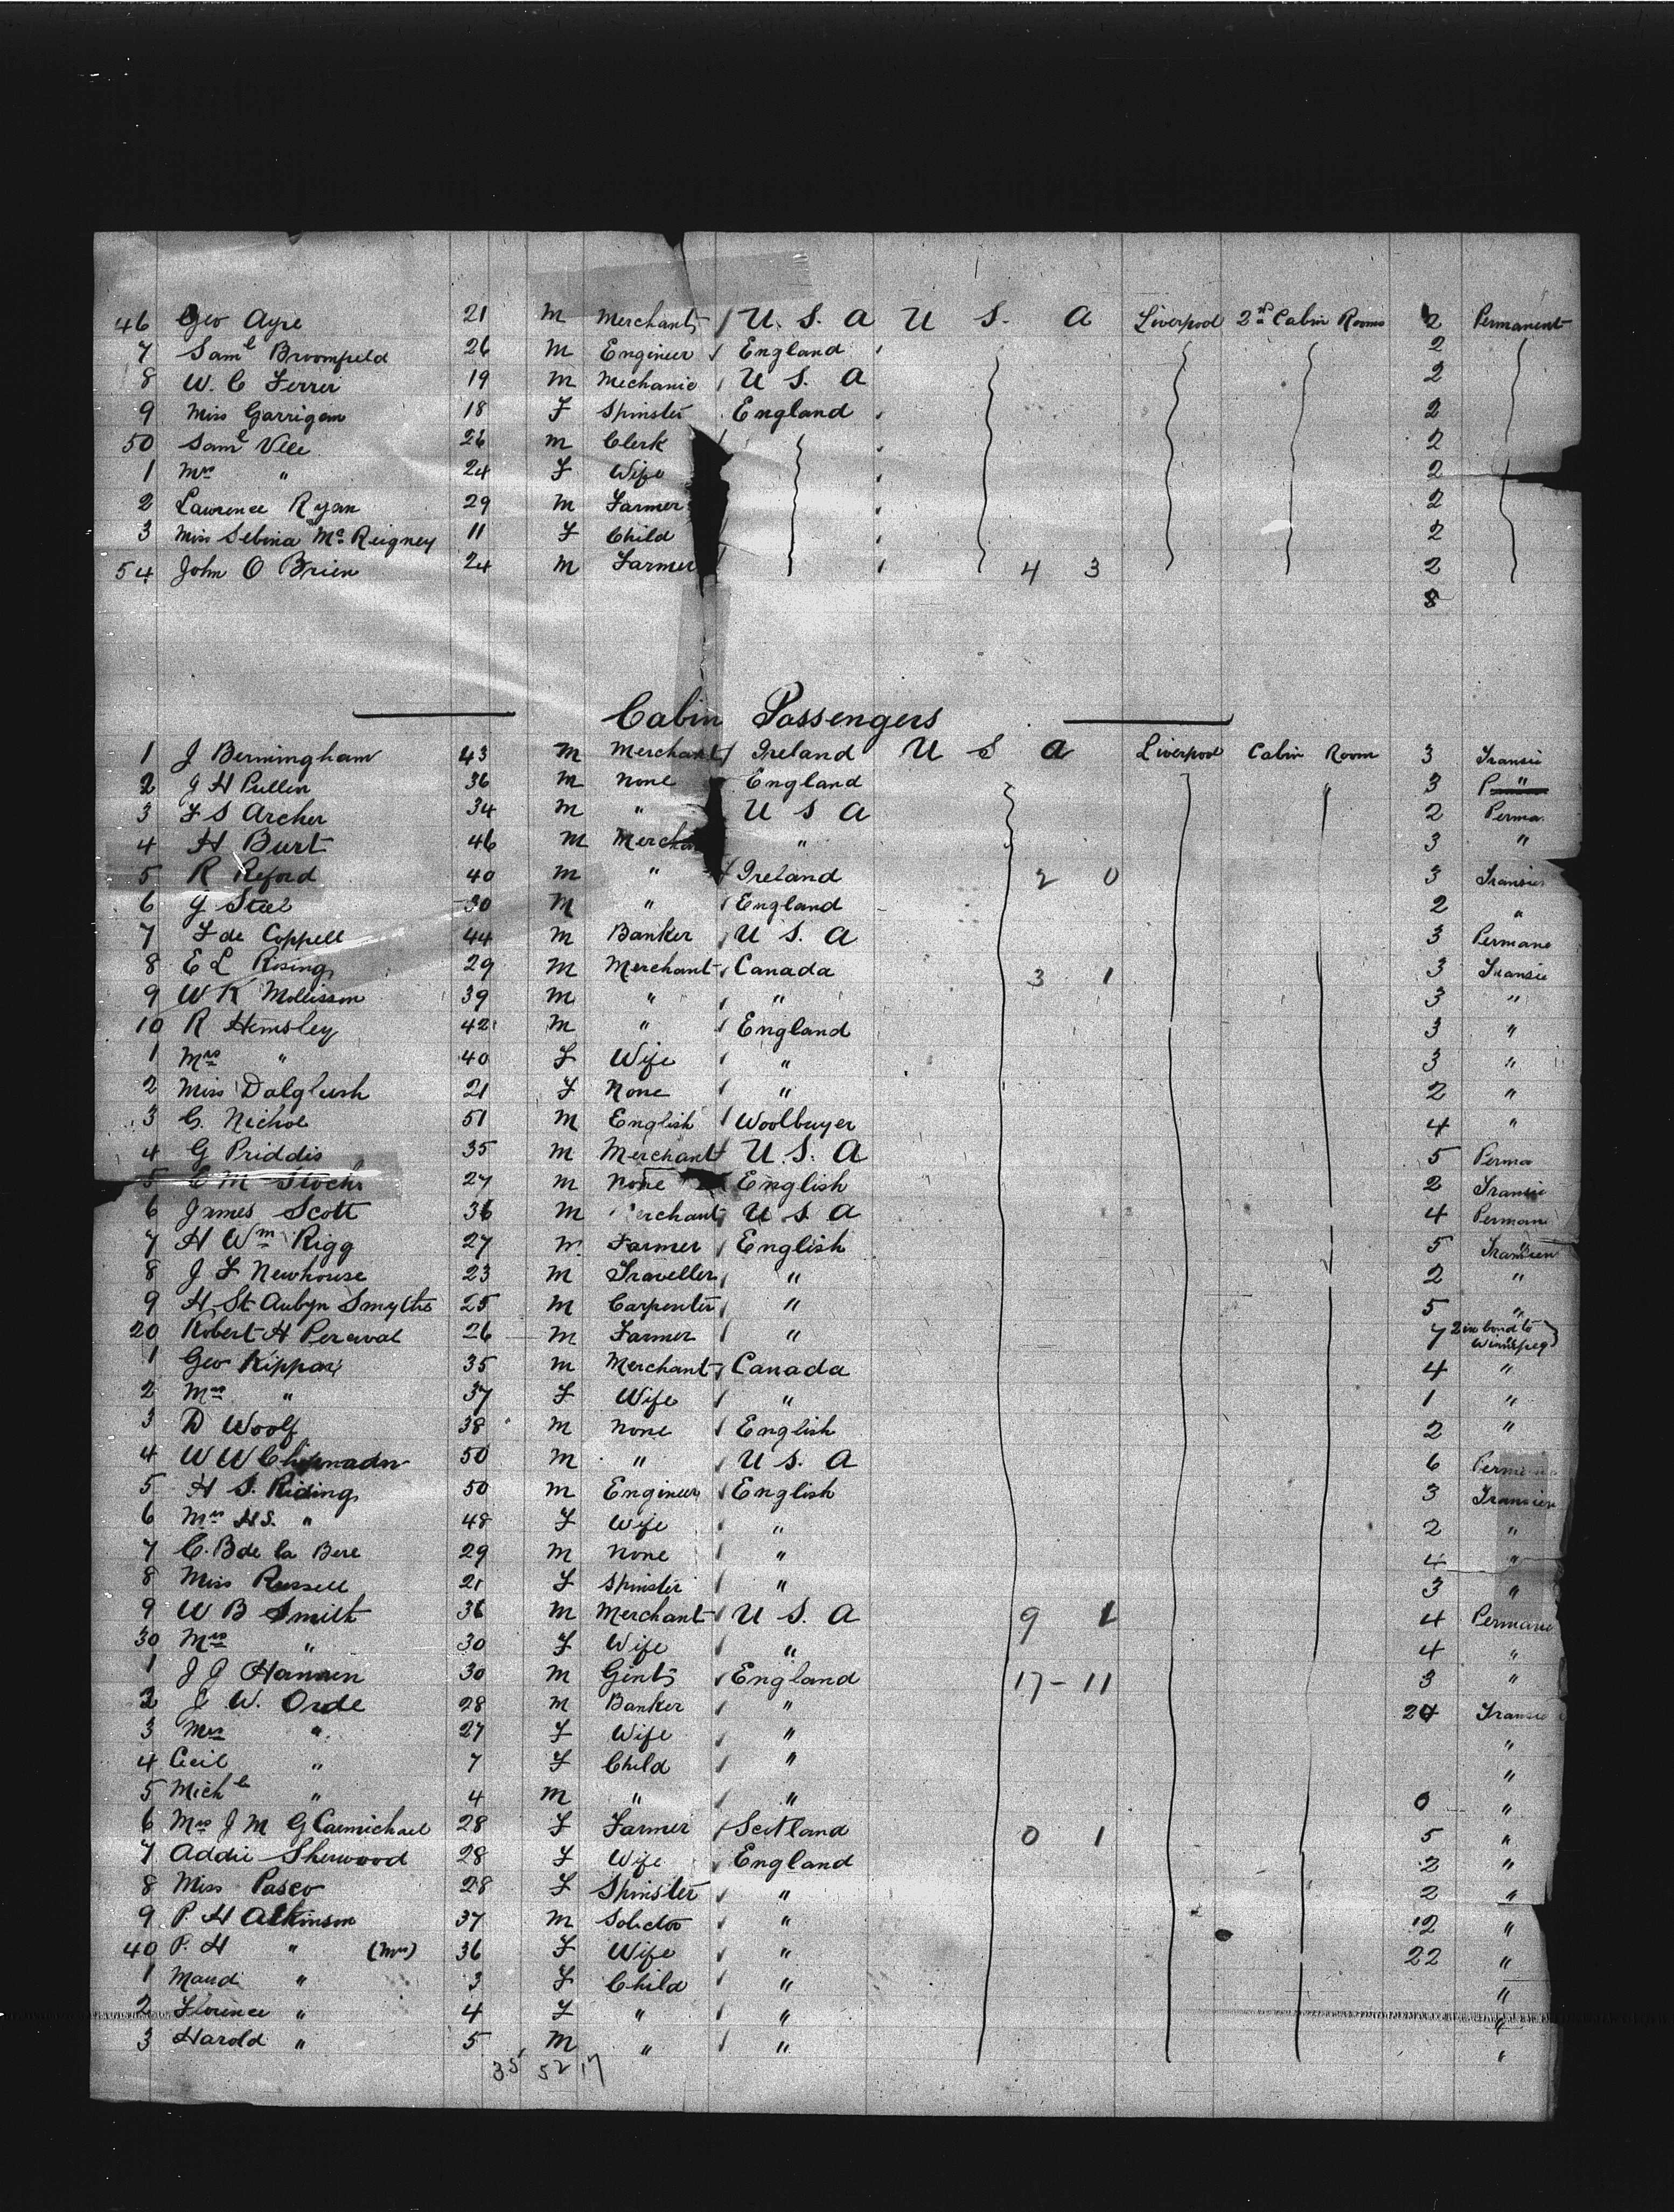 46 Geo Ayre 21 M Merchant U. S. A U S. A Liverpool 2nd Cabin Rooms 2 Permanent
7 Saml Broomfield 26 M Engineer England 2
8 W. C Ferrer 19 M Mechanic U S. A 2
9 Miss Garrigan 18 F Spinster England 2
50 Saml Vee 26 M Clerk 2
1 Mrs " 24 F Wife 2
2 Lawrence Ryan 29 M Farmer 2
3 Miss Selina Mc Reigney 11 F Child 2
54 John O Brien 24 M Farmer 4 3 2
8
Cabin Passengers
1 J Bermingham 43 M Merchant Ireland U S A Liverpool Cabin Room 3 Transie
2 J H Pullin 36 M None England 3 P "
3 F S Archer 34 M " U S A 2 Perma
4 H Burt 46 M Mercha " 3 "
5 R Reford 40 M " Ireland 2 0 3 Transien
6 J Steel 30 M " England 2 "
7 F de Coppell 44 M Banker U S. A 3 Permane
8 E L Rosing 29 M Merchant Canada 3 1 3 Transie
9 W K Mollisson 39 M " " 3 "
10 R Hemsley 42 M " England 3 "
1 Mrs " 40 F Wife " 3 "
2 Miss Dalglush 21 F None " 2 "
3 G. Nichol 51 M English Woolbuyer 4 "
4 G Priddis 35 M Merchant U. S. A 5 Perma
5 C M Stoehr 27 M None English 2 Transie
6 James Scott 36 M erchant U S A 4 Perman
7 H Wm Rigg 27 M Farmer English 5 Transien
8 J F Newhouse 23 M Traveller " 2 "
9 H St Aubyn Smythe 25 M Carpenter " 5 "
20 Robert H Perceval 26 M Farmer " 7 2 in bond to Winnipeg
1 Geo Kippax 35 M Merchant Canada 4 "
2 Mrs " 37 F Wife " 1 "
3 D Woolf 38 M None English 2 "
4 W W 50 M " U S. A 6 Perma
5 H S. Riding 50 M Engineer English 3 Transien
6 Mrs H S. " 48 F Wife " 2 "
7 C. B de la Bere 29 M None " 4 "
8 Miss Russell 21 F Spinster " 3 "
9 W B Smith 36 M Merchant U S. A 9 1 4 Permane
30 Mrs " 30 F Wife " 4 "
1 J J Hannen 30 M Gents England 17 - 11 3 "
2 J W. Orde 28 M Banker " 24 Transie
3 Mrs " 27 F Wife " "
4 Cecil " 7 F Child " "
5 Michl " 4 M " " 0 "
6 Mrs J M G Carmichael 28 F Farmer Scotland 0 1 5 "
7 Addie Sherwood 28 F Wife England 2 "
8 Miss Pasco 28 F Spinster " 2 "
9 P. H Atkinson 37 M Solicitor " 12 "
40 P. H " (Mrs) 36 F Wife " 22 "
1 Maud " 3 F Child " "
2 Florence " 4 F " " "
3 Harold " 5 M " " "
35 52 17